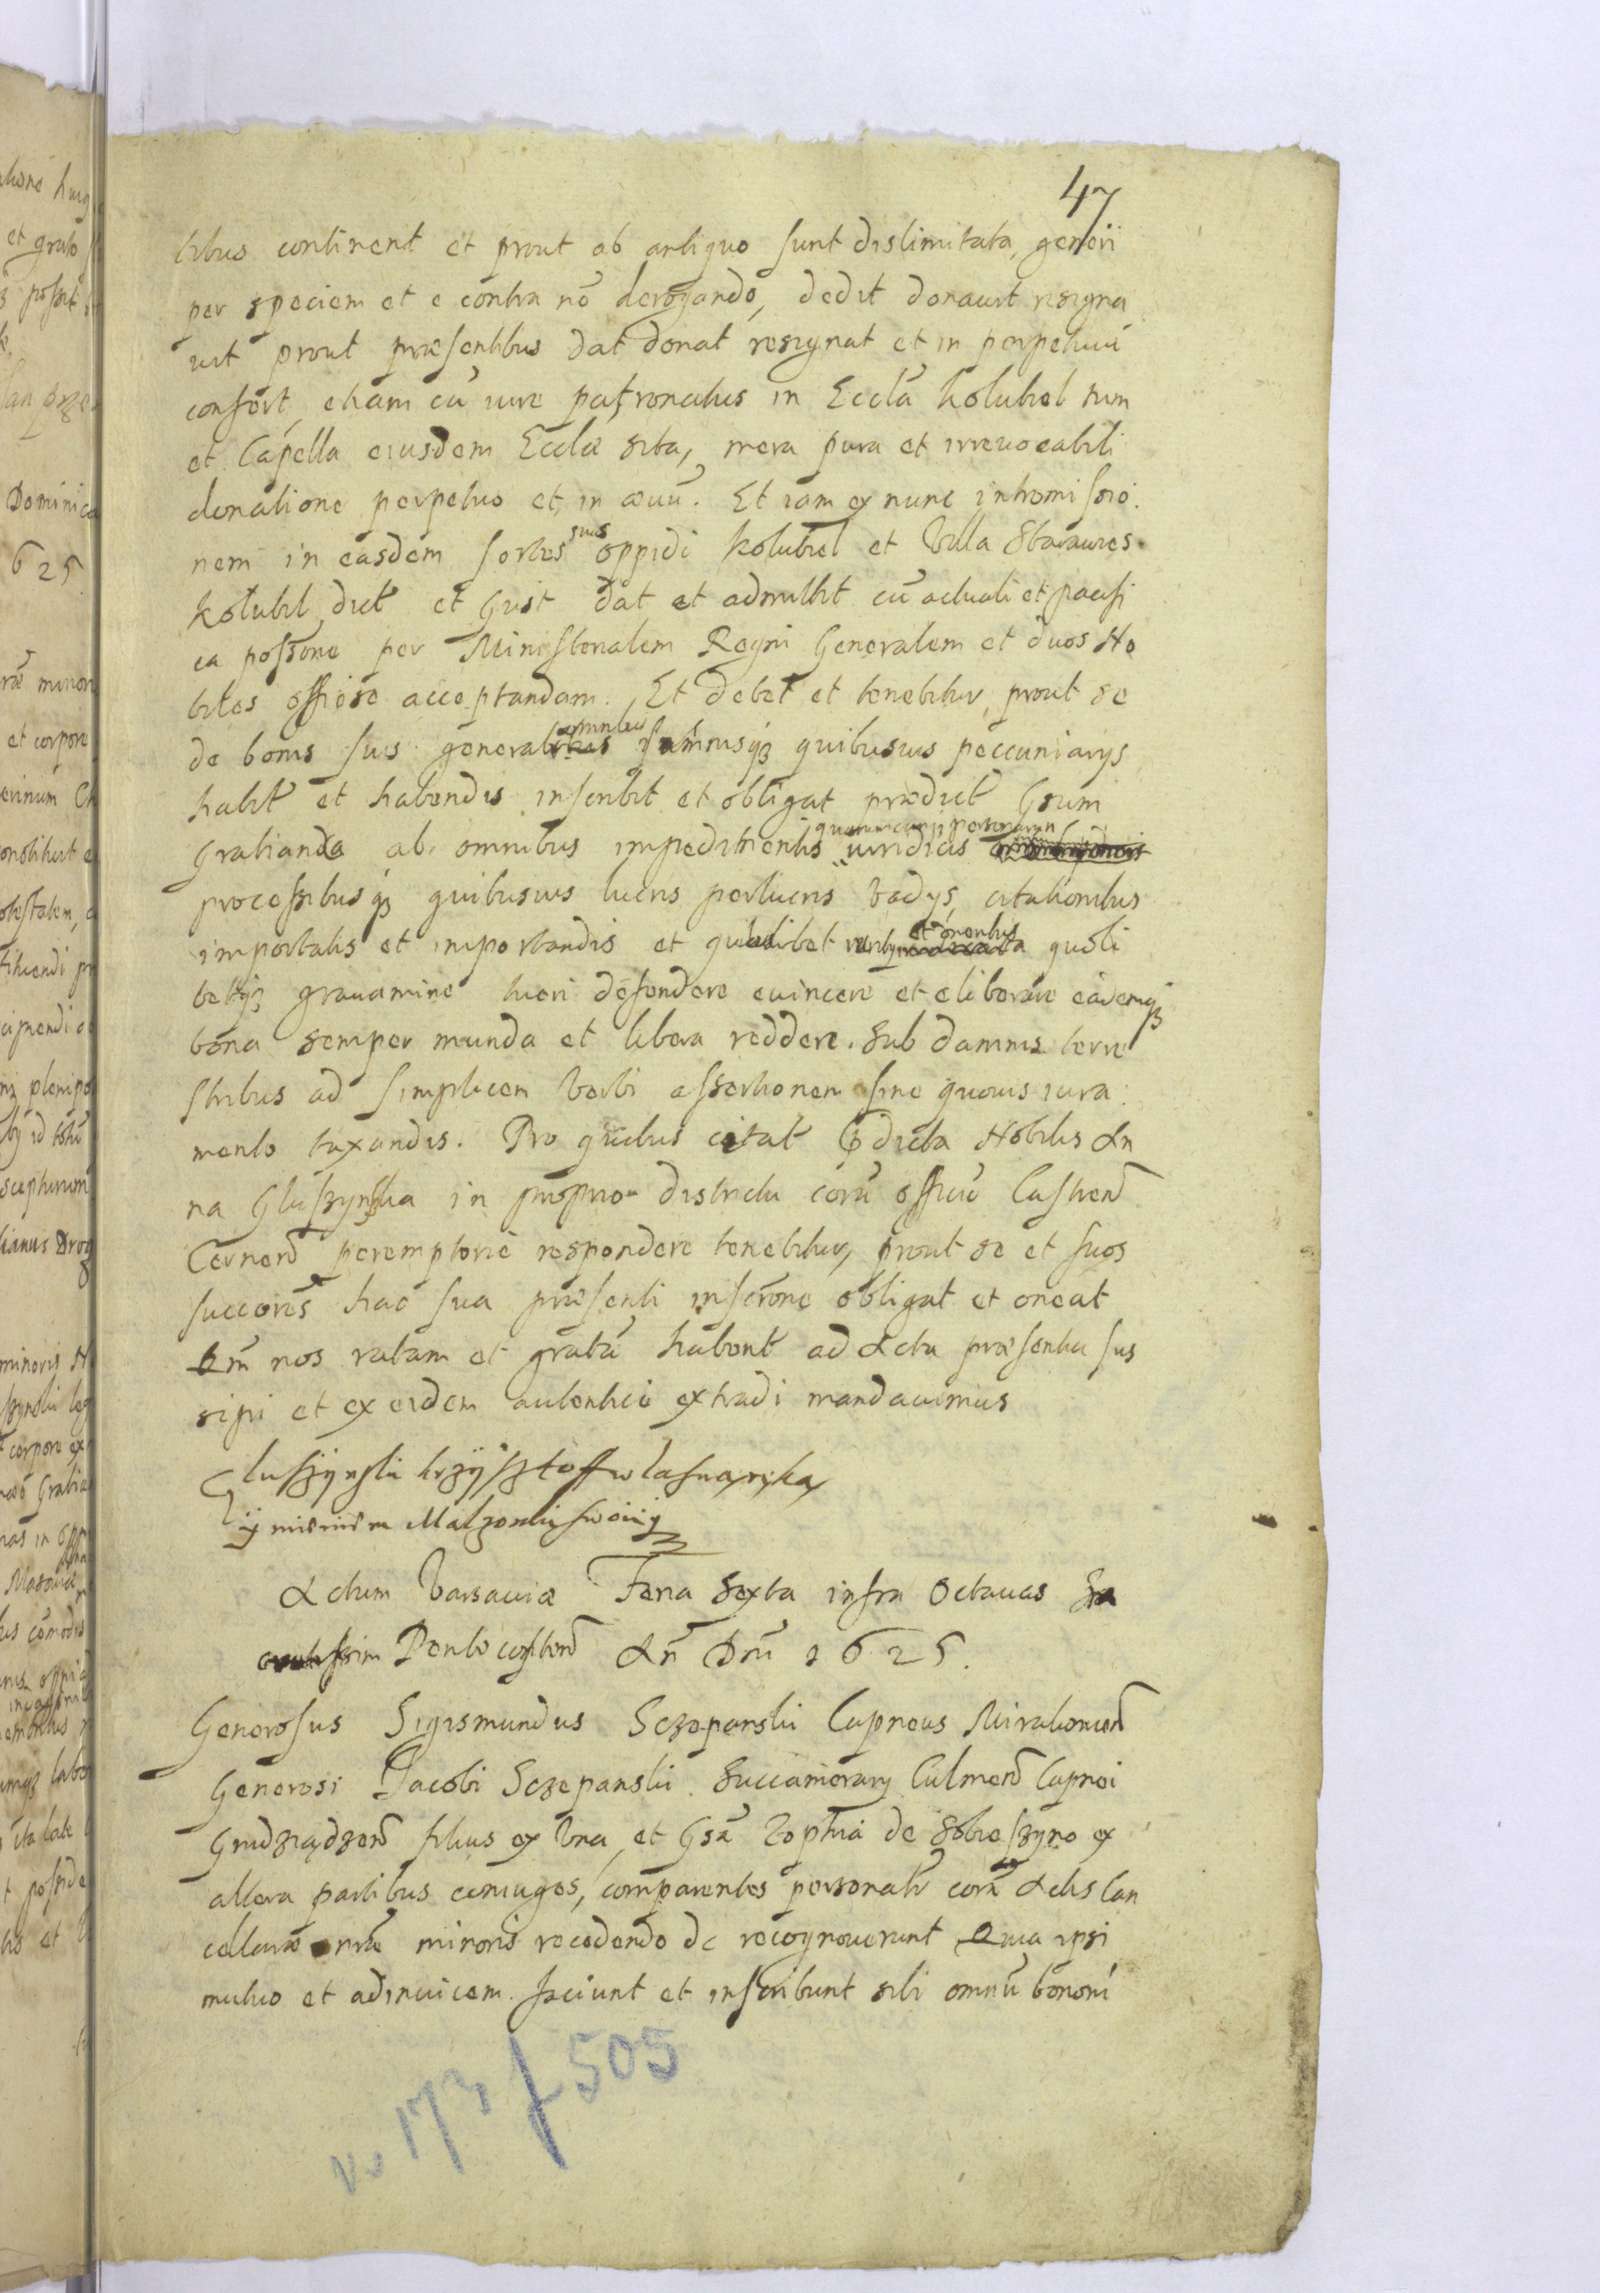 47
titus continent et prout ab antiquo sunt dislimitata, generi
per speciem et e contra nō derogando, dedit donavit resigna
vit prout præsentibus dat donat resignat et in perpetuū
confert, etiam cū iure patronatus in Eccla Kolubiel tum
et Capella eiusdem Ecclæ sita, mera pura et irrevocabili
donatione perpetuo et in ævū. Et iam ex nunc intromissio.
nem in easdem sortes suas oppidi Kolubiel et Villa Starawies
Kolubiel dict et Gust dat et admittit cū actuali et pacifi
ca possone per Ministerialem Regni Generalem et duos No
biles officiose acceptandam. Et debet et tenebitur, prout se
de bonis suis generaliter omnibus sumusq3 quibusvis peccuniarys
habit et habendis inscribit et obligat prædict Gsum
Gratianda ab omnibus impedimentis quarumcunq3 personarum iuridicis
processibusq3 quibusvis lucris perlucris Vadys, citationibus
importatis et importandis et quolibet et oneribus quoli
betq3 gravamine tueri defendere evincere et eliberare eademq3
bona semper munda et libera reddere. Sub damnis terre
stribus ad simplicem Verbi assertionem sine quovis iura:
mento taxandis. Pro quibus citat dicta Nobilis An
na Gluszynska in proprio districtu corā officio Castren
Cernen peremptorie respondere tenebitur, prout se et suos
succores hac sua præsenti inscrone obligat et onerat
Qm nos ratam et gratā habent ad Acta præsentia sus
cipi et ex eisdem autenticē extradi mandavimus
Gluszÿnski krzÿsztoff wlasną ręką
ÿ mieniem Małzonki swoiiÿ
Actum Varsaviæ Feria Sexta infra Octavas Sa
cratissim Pentecosten An Dni 1625.
Generosus Sigismundus Sczepanski Capneus Mirachowien
Generosi Jacobi Sczepanski Succamerary Culmen Capnei
Grudziądzen filius ex Una, et Gsa Zophia de Sobieszyno ex
altera partibus coniuges, comparentes personalr corā Actis Can
cellariæ nræ minoris recedendo de recognoverunt Quia ipsi
mutuo et adinvicem faciunt et inscribunt sibi omniū bonorū
v. 173 f 505